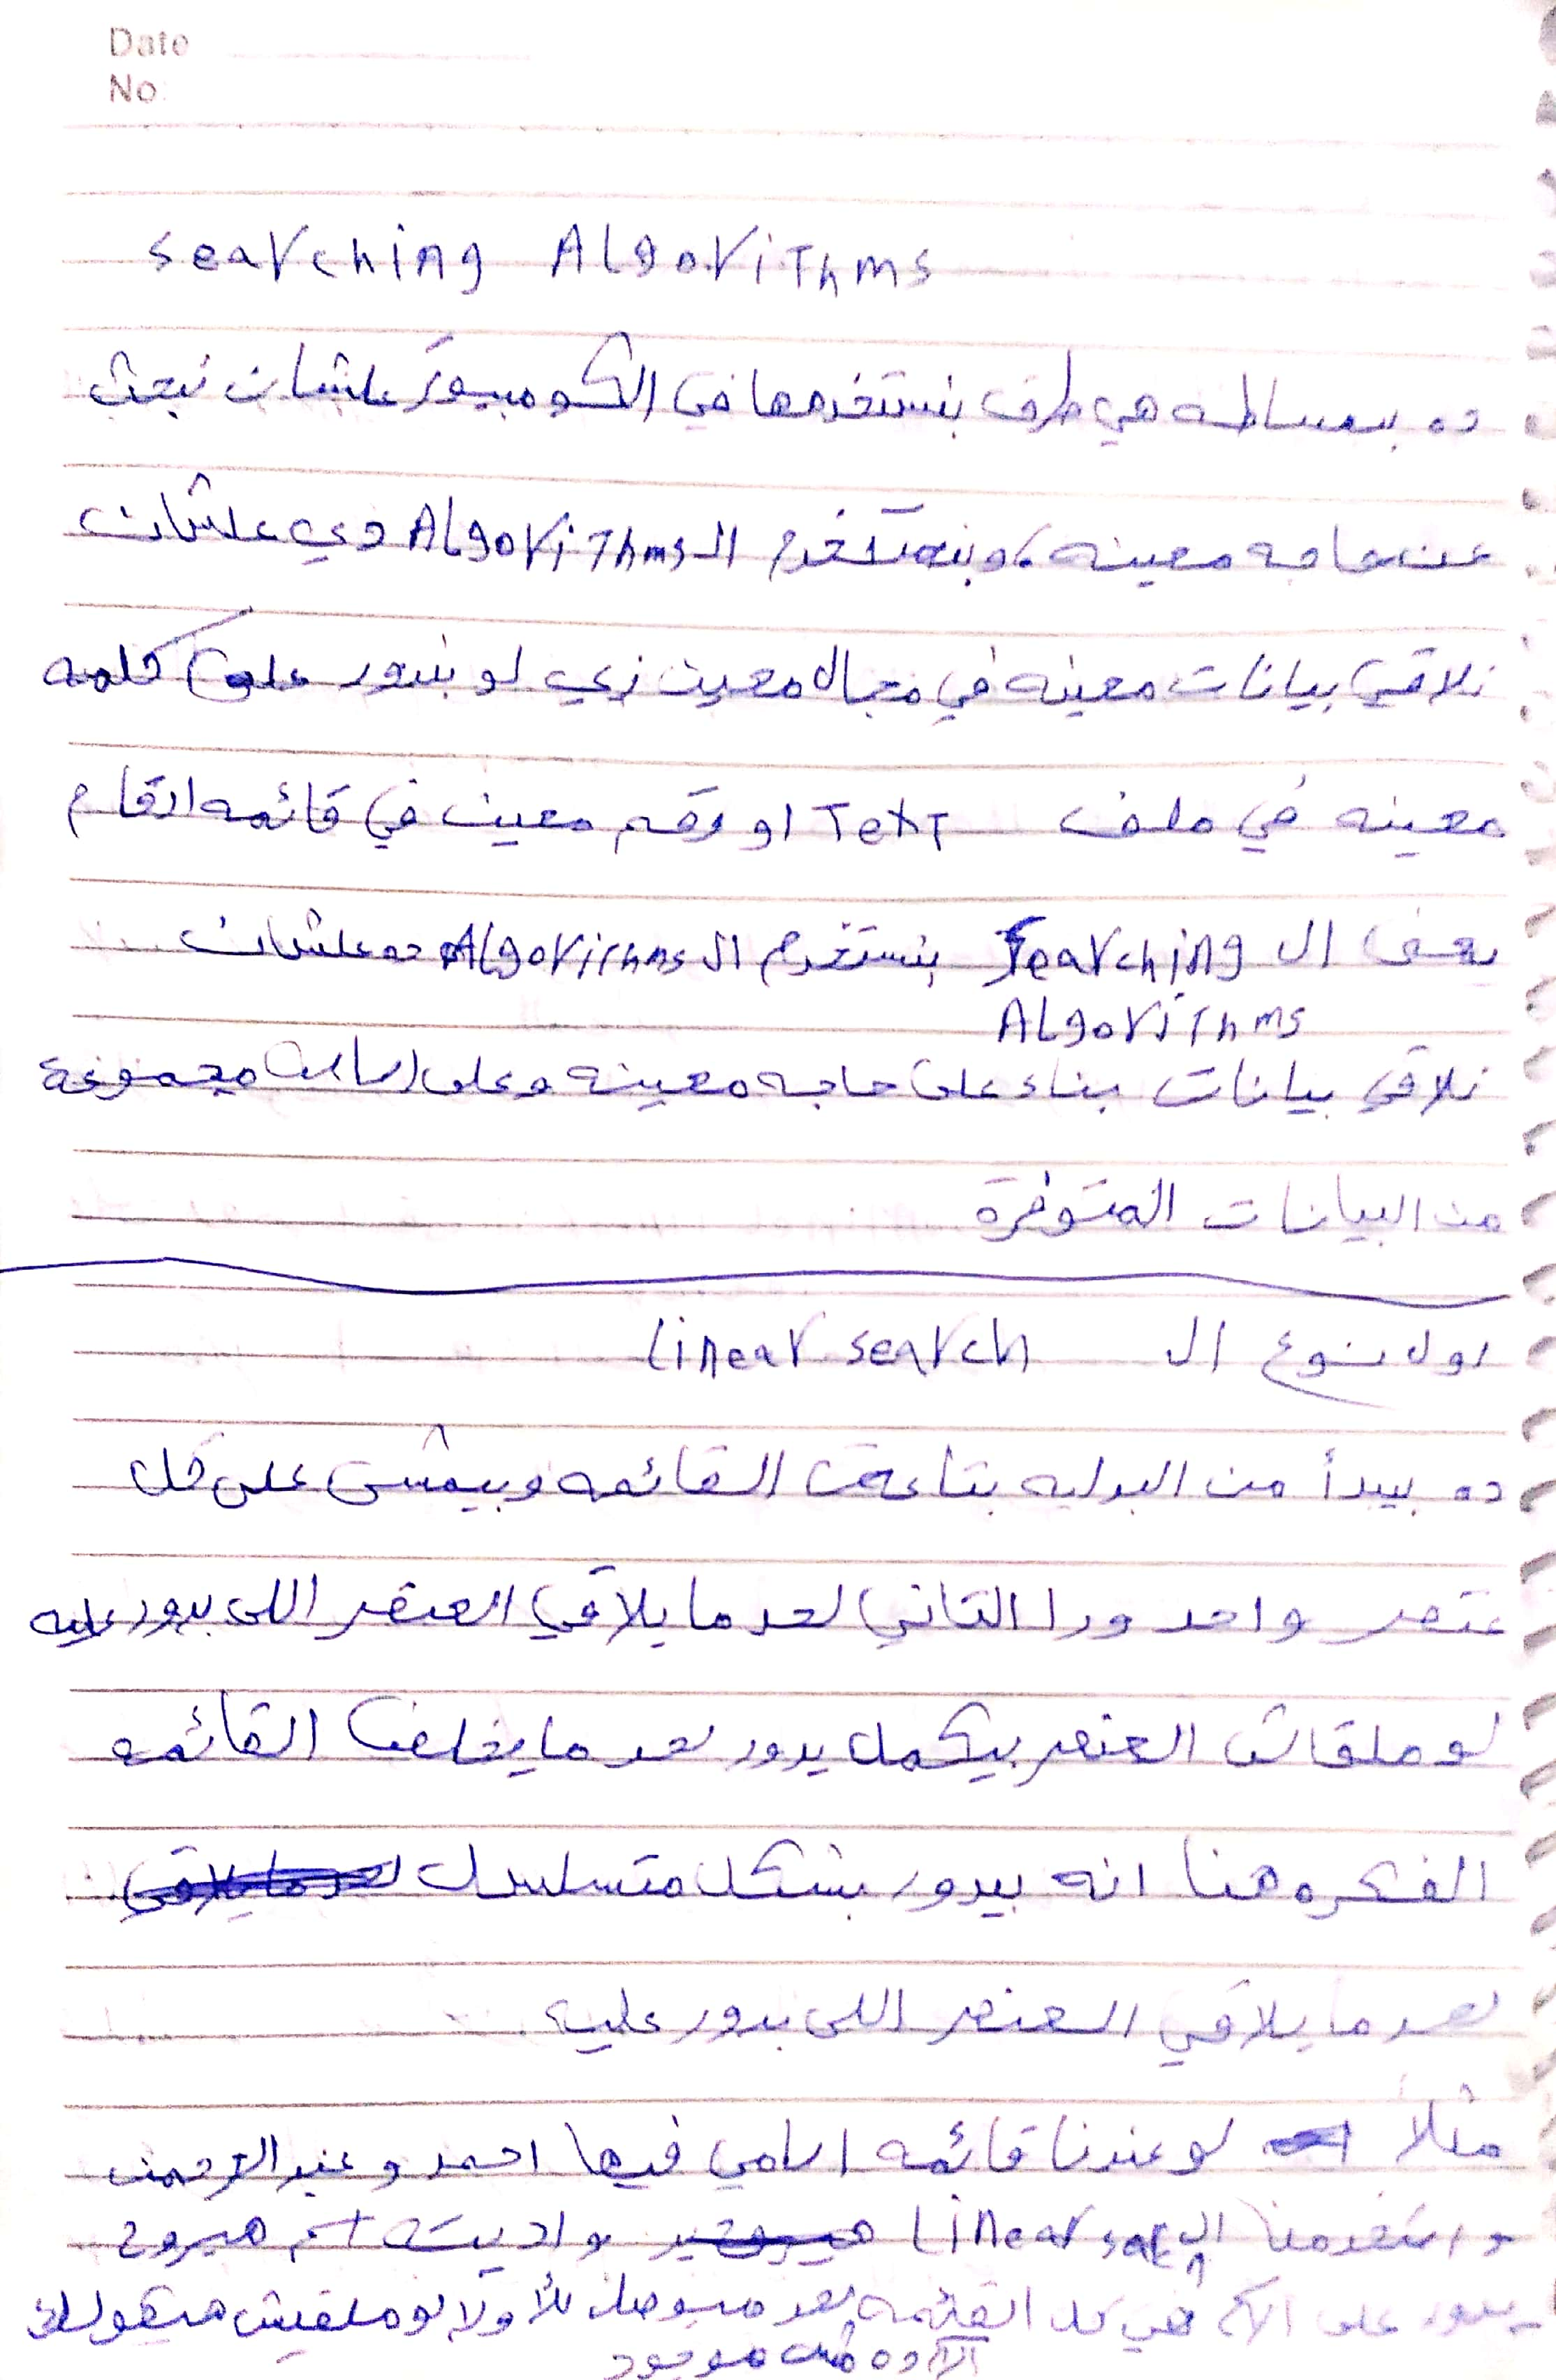 Date
No:
Searching Algorithms
ده ببساطه هي طرق بنستخدمها في الكومبيوتر علشان نبحث
عن حاجه معينه، وبنستخدم الـ Algorithms دي علشان
نلاقي بيانات معينه في مجال معين زي لو بندور على كلمه
معينه في ملف Text او رقم معين في قائمه ارقام
يعنى ال Searching بنستخدم الـ Algorithms ده علشان
Algorithms
نلاقي بيانات بناء على حاجه معينه وعلى اساس مجموعة
من البيانات المتوفرة
اول نوع ال Linear search
ده بيبدأ من البدايه بتاعت القائمه وبيمشى على كل
عنصر واحد ورا التاني لحد ما يلاقي العنصر اللى بيدور عليه
لو ملقاش العنصر بيكمل يدور لحد ما يخلص القائمه
الفكره هنا انه بيدور بشكل متسلسل
لحد ما يلاقي العنصر اللى بدور عليه
مثلاً لو عندنا قائمه اسامي فيها احمد و عبد الرحمن
و استخدمنا ال Linear search واديته اسم هيروح
يدور على الاسم في كل القائمه لحد ميوصل للأ ولا لو ملقيش هيقولك
الاسم ده مش موجود